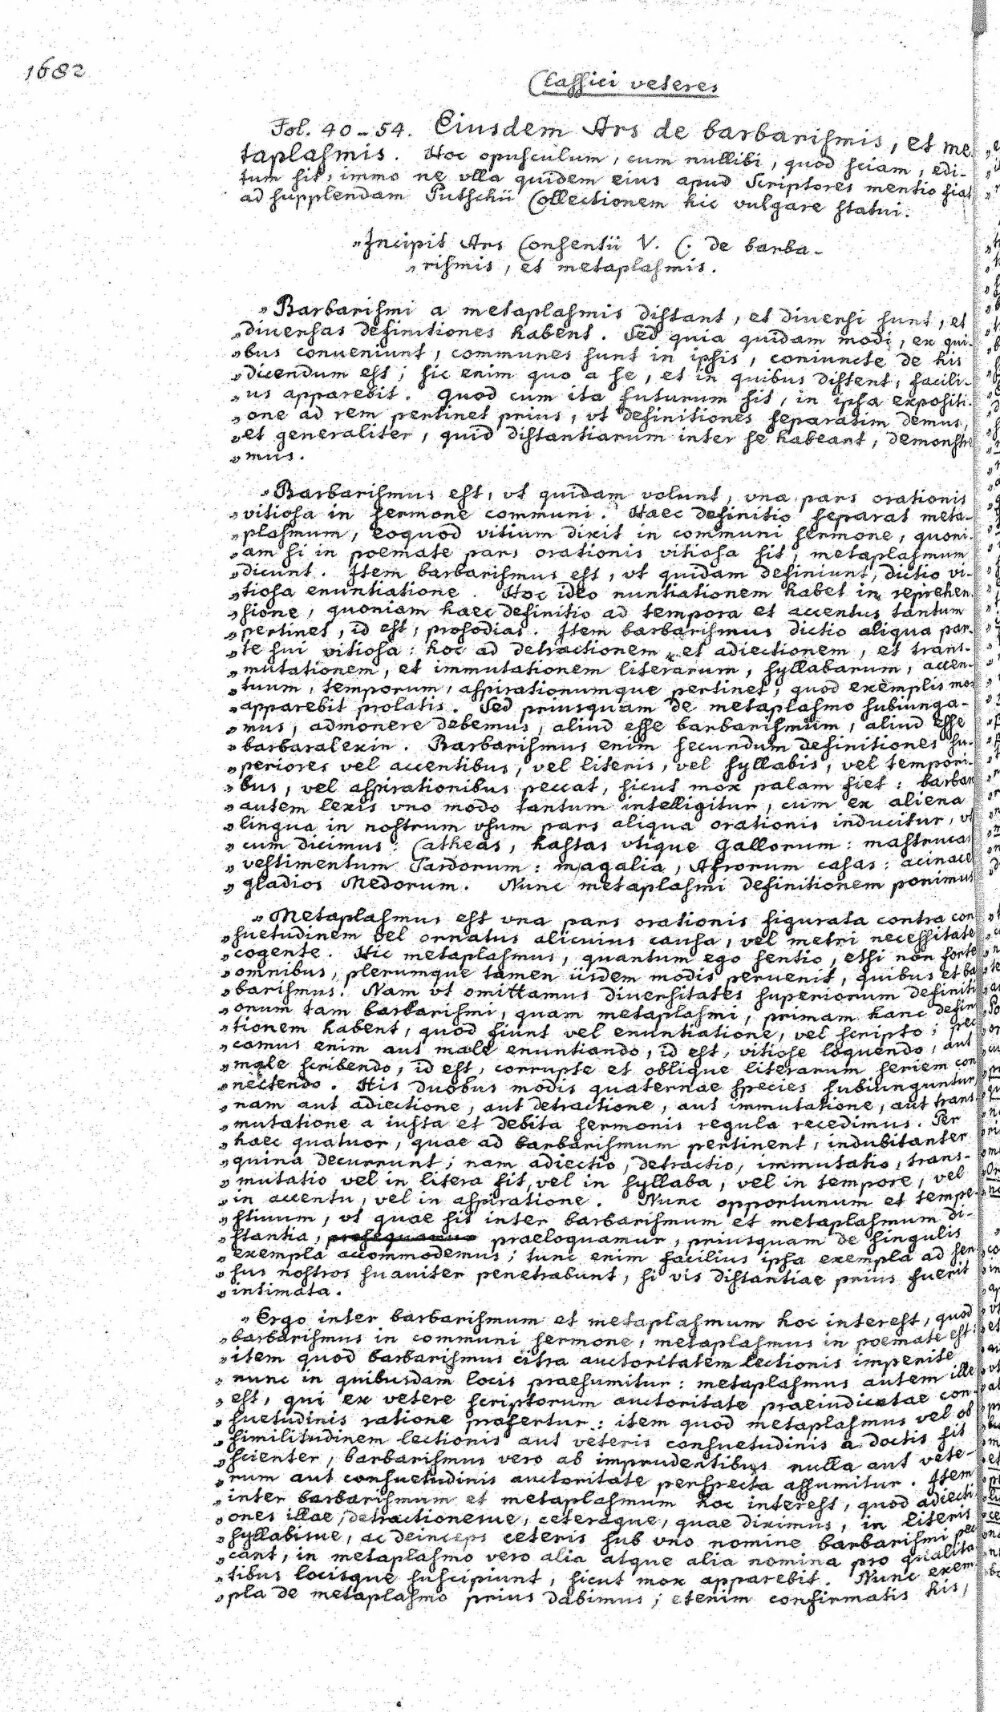 1682
Classici veteres
Fol. 40-54. Eiusdem Ars de barbarismis, et me
taplasmis. Hoc opusculum, cum nullibi, quod sciam, edi-
tum sit, immo ne vlla quidem eius apud Scriptores mentio fiat
ad supplendam Putschii Collectionem hic vulgare statui.
"Incipit Ars Consentii V. C. de barba-
"rismis, et metaplasmis.
"Barbarismi a metaplasmis distant, et diuersi sunt, et
"diuersas definitiones habent. Sed quia quidam modi, ex qui-
"bus conueniunt, communes sunt in ipsis, coniuncte de his
"dicendum est; sic enim quo a se, et in quibus distent, facili-
"us apparebit. Quod cum ita futurum sit, in ipsa expositi-
"one ad rem pertinet prius, vt definitiones separatim demus,
"et generaliter, quid distantiarum inter se habeant, demonstre
"mus.
"Barbarismus est, vt quidam volunt, vna pars orationis
"vitiosa in sermone communi. Haec definitio separat meta-
"plasmum, eoquod vitium dixit in communi sermone, quoni-
"am si in poemate pars orationis vitiosa sit, metaplasmum
"dicunt. Item barbarismus est, vt quidam definiunt, dictio vi-
"tiosa enuntiatione. Hoc ideo nuntiationem habet in reprehen
"sione, quoniam haec definitio ad tempora et accentus tantum
"pertinet, id est, prosodias. Item barbarismus dictio aliqua par-
"te sui vitiosa: hoc ad detractionem, et adiectionem, et trans-
"mutationem, et immutationem literarum, syllabarum, accen-
"tuum, temporum, aspirationumque pertinet, quod exemplis mox
"apparebit prolatis. Sed priusquam de metaplasmo subiunga-
"mus, admonere debemus, aliud esse barbarismum, aliud esse
"barbaralexin. Barbarismus enim secundum definitiones su-
"periores vel accentibus, vel literis, vel syllabis, vel tempori-
"bus, vel aspirationibus peccat, sicut mox palam fiet: barbar
"autem lexis vno modo tantum intelligitur, cum ex aliena
"lingua in nostrum vsum pars aliqua orationis inducitur, vt
"cum dicimus: Catheas, hastas vtique Gallorum: mastrucas
"vestimentum Sardorum: magalia, Afrorum casas: acinace
"gladios Medorum. Nunc metaplasmi definitionem ponimus
"Metaplasmus est vna pars orationis figurata contra con
"suetudinem vel ornatus alicuius causa, vel metri necessitate
"cogente. Hic metaplasmus, quantum ego sentio, etsi non forte
"omnibus, plerumque tamen iisdem modis peruenit, quibus et ba
"barismus. Nam vt omittamus diuersitates superiorum definiti
"onum tam barbarismi, quam metaplasmi, primam hanc defini
"tionem habent, quod fiunt vel enuntiatione, vel scripto; pec
"camus enim aut male enuntiando, id est, vitiose loquendo, aut
"male scribendo, id est, corrupte et oblique literarum seriem con
"nectendo. His duobus modis quaternae species subiunguntur
"nam aut adiectione, aut detractione, aut immutatione, aut trans
"mutatione a iusta et debita sermonis regula recedimus. Per
"haec quatuor, quae ad barbarismum pertinent, indubitanter
"quina decurrunt; nam adiectio, detractio, immutatio, trans-
"mutatio vel in litera fit, vel in syllaba, vel in tempore, vel
"in accentu, vel in aspiratione. Nunc opportunum et tempe-
"stiuum, vt quae sit inter barbarismum et metaplasmum di-
"stantia, prosequamur praeloquamur, priusquam de singulis
"exempla accommodemus; tunc enim facilius ipsa exempla ad sen
"sus nostros suauiter penetrabunt, si vis distantiae prius fuerit
"intimata.
"Ergo inter barbarismum et metaplasmum hoc interest, quod
"barbarismus in communi sermone, metaplasmus in poemate est:
"item quod barbarismus citra auctoritatem lectionis imperite
"nunc in quibusdam locis praesumitur: metaplasmus autem ille
"est, qui ex vetere scriptorum auctoritate praeiudicatae con-
"suetudinis ratione profertur: item quod metaplasmus vel ob
"similitudinem lectionis aut veteris consuetudinis a doctis fit
"scienter, barbarismus vero ab imprudentibus nulla aut vete-
"rum aut consuetudinis auctoritate perspecta assumitur. Item
"inter barbarismum et metaplasmum hoc interest, quod adiecti
"ones illae, detractionesue, ceteraque, quae diximus, in literis
"syllabisue, ac deinceps ceteris sub vno nomine barbarismi pec
"cant, in metaplasmo vero alia atque alia nomina pro qualita
"tibus locisque suscipiunt, sicut mox apparebit. Nunc exem
"pla de metaplasmo prius dabimus; etenim confirmatis his,